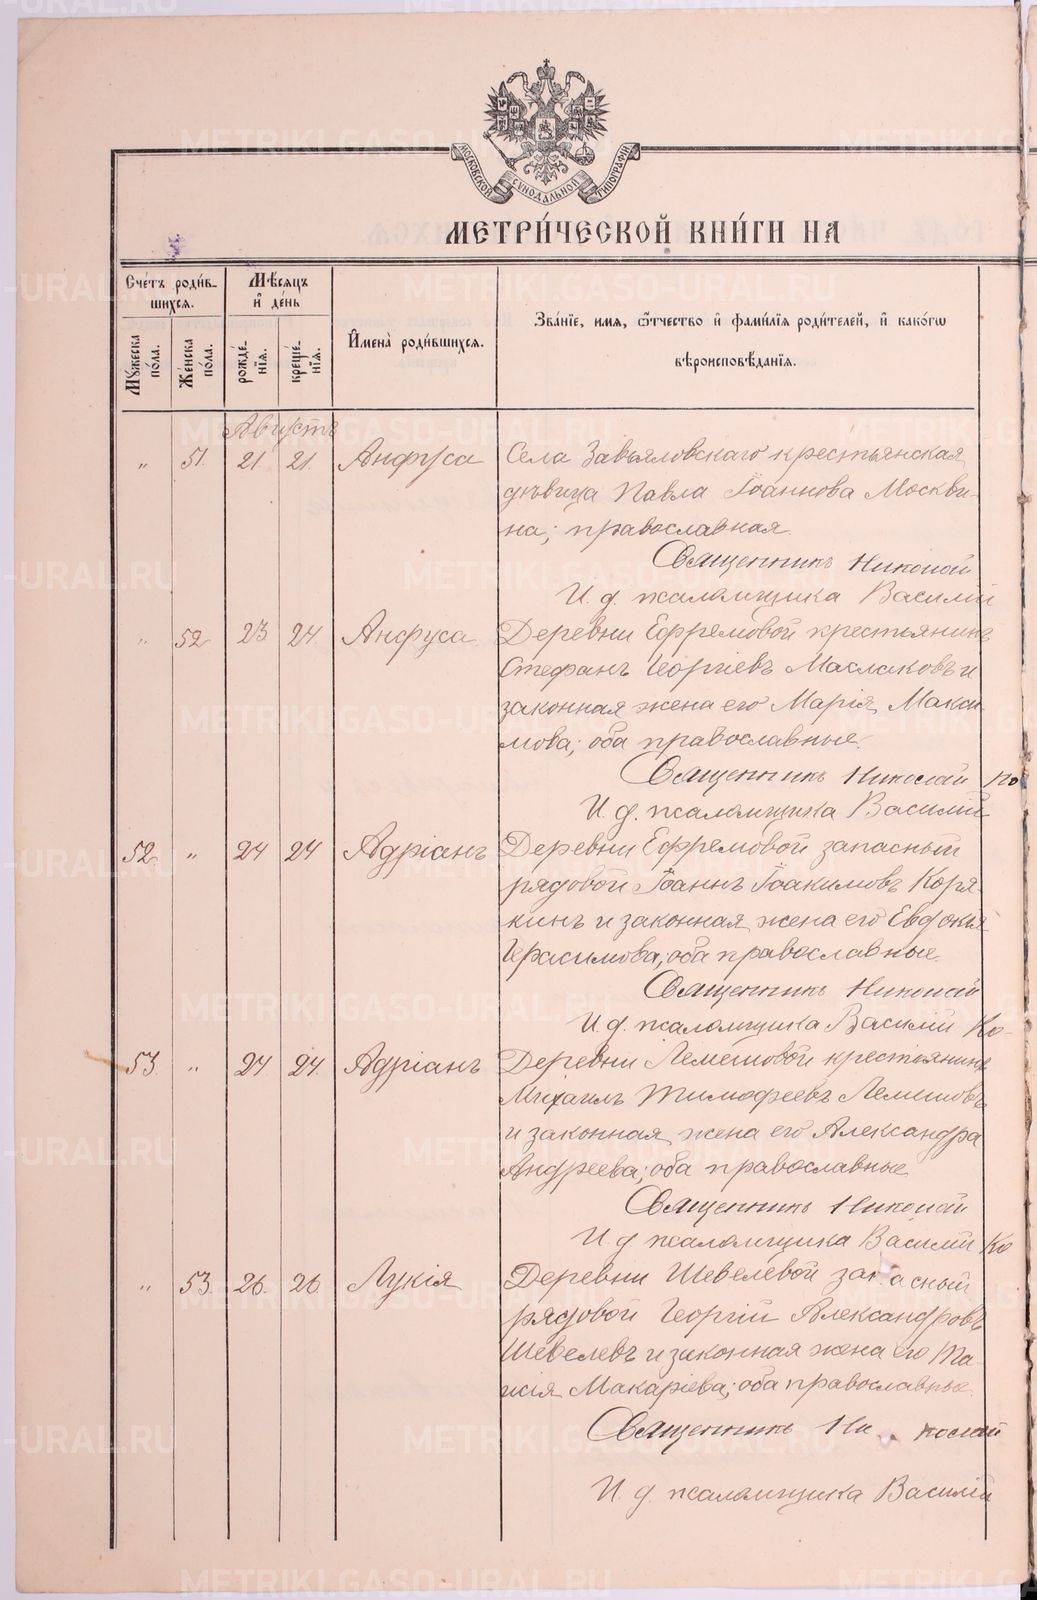 МОСКОВСКОЙ СѴНОДАЛЬНОЙ ТИПОГРАФІИ
МЕТРИ́ЧЕСКОЙ КНИ́ГИ НА
Счётъ роди́вшихся.
Мѣ́сяцъ и҆ де́нь
И҆мена̀ роди́вшихся.
Зва́нїе, имя, ѿтчество и҆ фами́лїя роди́телей, и҆ како́гѡ вѣроисповѣ́данїя.
Мꙋ́жеска по́ла.
Же́нска по́ла.
рожде́нїя.
креще́нїя.
Августъ
„ 51. 21. 21. Анфуса Села Завьяловскаго крестьянская
дѣвица Павла Іоаннова Москви-
на; православная.
Священникъ Николай
И. д. псаломщика Василій
„ 52. 23 24. Анфуса. Деревни Ефремовой крестьянинъ
Стефанъ Георгіевъ Маслаковъ и
законная жена его Марія Макси
мова; оба православные.
Священникъ Николай Ко
И. д. псаломщика Василій
52. „ 24 24 Адріанъ Деревни Ефремовой запасный
рядовой Іоаннъ Іоакимовъ Коря-
кинъ и законная жена его Евдокія
Герасимова, оба православные.
Священникъ Николай
И. д. псаломщика Василій Ко-
53. „ 24. 24. Адріанъ Деревни Лемешовой крестьянинъ
Михаилъ Тимофеевъ Лемешовъ
и законная жена его Александра
Андреева; оба православные
Священникъ Николай
И. д псаломщика Василій Ко
„ 53. 26. 26. Лукія Деревни Шевелевой запасный
рядовой Георгій Александровъ
Шевелевъ и законная жена его Та-
исія Макаріева; оба православные.
Священникъ Николай
И. д. псаломщика Василій
METRIKI.GASO-URAL.RU